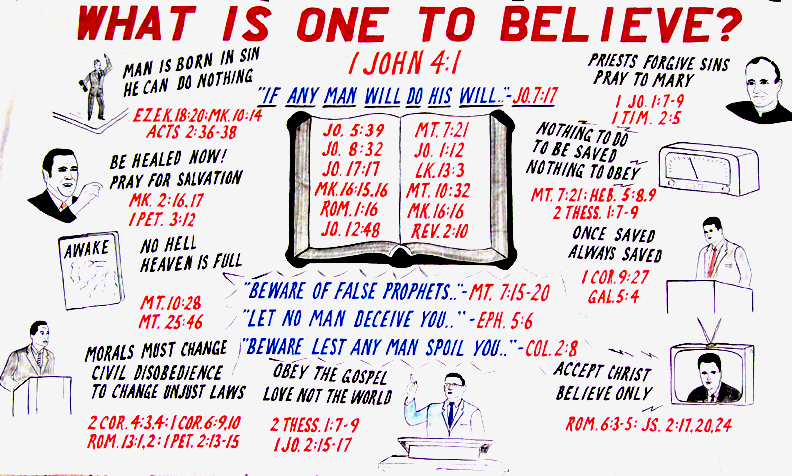 WHAT IS ONE TO BELIEVE?
1 JOHN 4:1
"IF ANY MAN WILL DO HIS WILL.."-JO.7:17
MAN IS BORN IN SIN
HE CAN DO NOTHING
EZEK.18:20; MK.10:14
ACTS 2:36-38
PRIESTS FORGIVE SINS
PRAY TO MARY
1 JO. 1:7-9
1 TIM. 2:5
JO. 5:39
JO. 8:32
JO. 17:17
MK.16:15,16
ROM. 1:16
JO. 12:48
MT. 7:21
JO. 1:12
LK. 13:3
MT. 10:32
MK. 16:16
REV. 2:10
BE HEALED NOW!
PRAY FOR SALVATION
MK. 2:16,17
1 PET. 3:12
NOTHING TO DO
TO BE SAVED
NOTHING TO OBEY
MT. 7:21; HEB. 5:8,9
2 THESS. 1:7-9
AWAKE
NO HELL
HEAVEN IS FULL
MT. 10:28
MT. 25:46
ONCE SAVED
ALWAYS SAVED
1 COR. 9:27
GAL. 5:4
"BEWARE OF FALSE PROPHETS.."-MT. 7:15-20
"LET NO MAN DECEIVE YOU.."-EPH. 5:6
"BEWARE LEST ANY MAN SPOIL YOU.."-COL. 2:8
MORALS MUST CHANGE
CIVIL DISOBEDIENCE
TO CHANGE UNJUST LAWS
2 COR. 4:3,4; 1 COR. 6:9,10
ROM. 13:1,2; 1 PET. 2:13-15
OBEY THE GOSPEL
LOVE NOT THE WORLD
2 THESS. 1:7-9
1 JO. 2:15-17
ACCEPT CHRIST
BELIEVE ONLY
ROM. 6:3-5; JS. 2:17,20,24